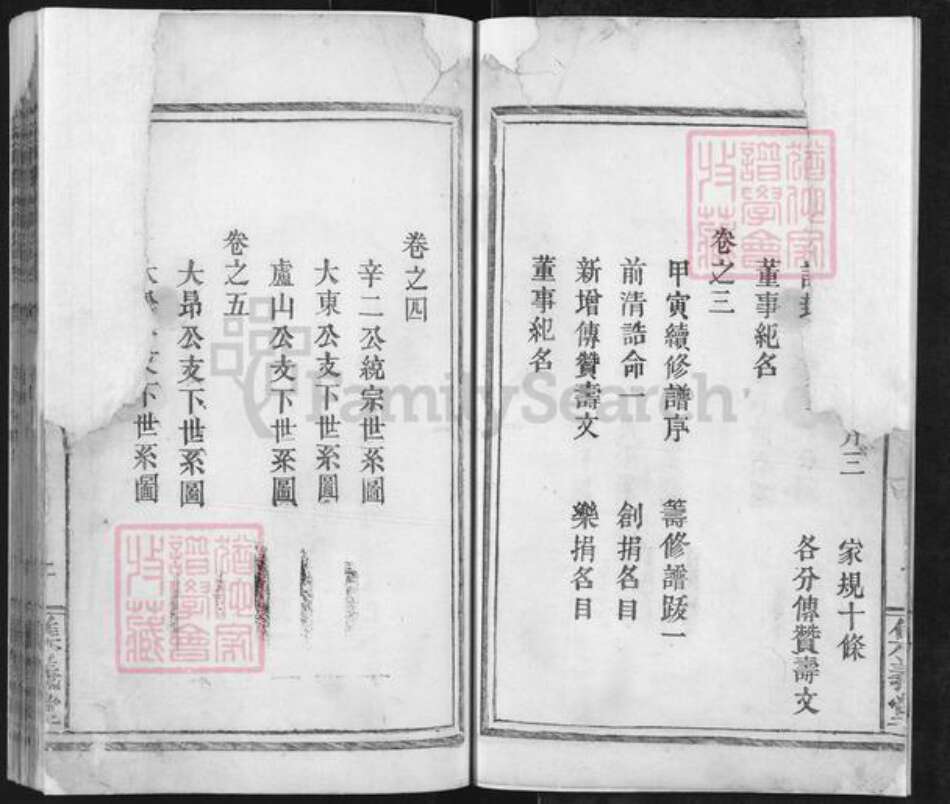 序三　家規十條
各分傳贊壽文
董事紀名
卷之三
甲寅續修譜序　籌修譜跋一
前清誥命一　創捐名目
新增傳贊壽文　樂捐名目
董事紀名
卷之四
辛二公統宗世系圖
大東公支下世系圖
廬山公支下世系圖
卷之五
大昻公支下世系圖
支下世系圖
FamilySearch
譜學會
收藏
譜學會
收藏